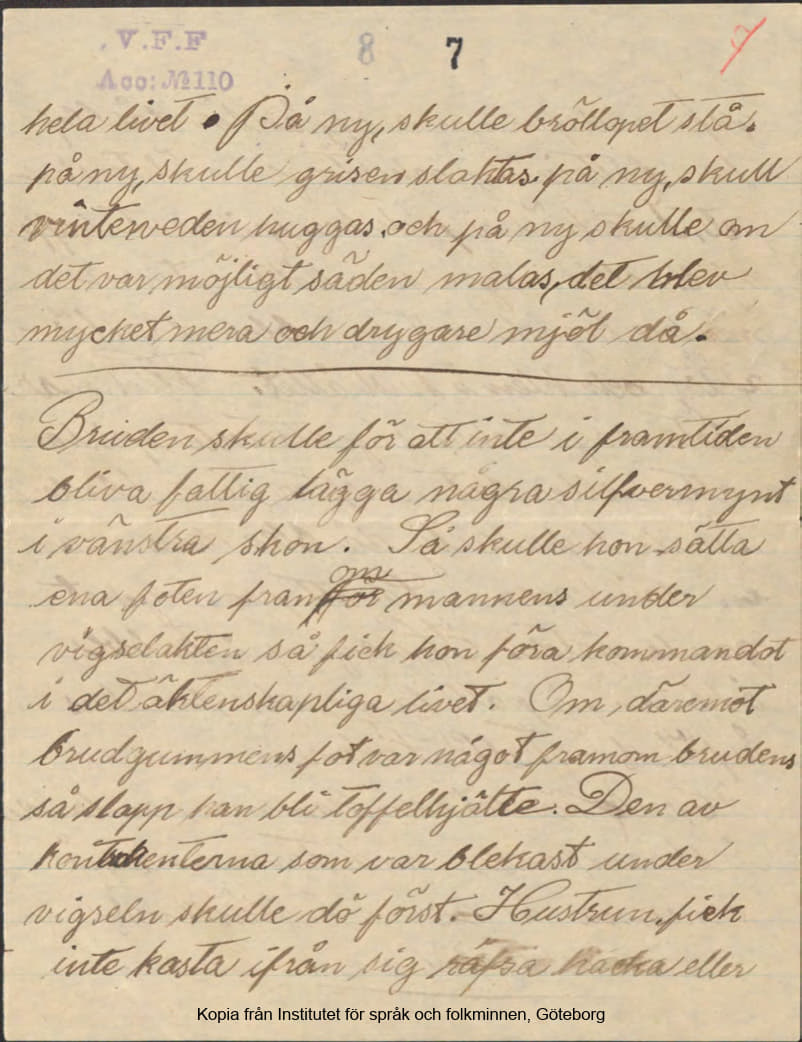 V.F.F
Acc: №110
8 7
9
hela livet. På ny, skulle bröllopet stå.
på ny, skulle grisen slaktas. på ny, skull
vinterveden huggas. och på ny skulle om
det var möjligt säden malas, det blev
mycket mera och drygare mjöl då.
Bruden skulle för att inte i framtiden
bliva fattig lägga några silfvermynt
i vänstra skon. Så skulle hon sätta
om
ena foten framför mannens under
vigselakten så fick hon föra kommandot
i det äktenskapliga livet. Om, däremot
brudgummens fot var något framom brudens
så slapp han bli toffelhjälte. Den av
kontrahenterna som var blekast under
vigseln skulle dö först. Hustrun, fick
inte kasta ifrån sig räfsa hacka eller
Kopia från Institutet för språk och folkminnen, Göteborg